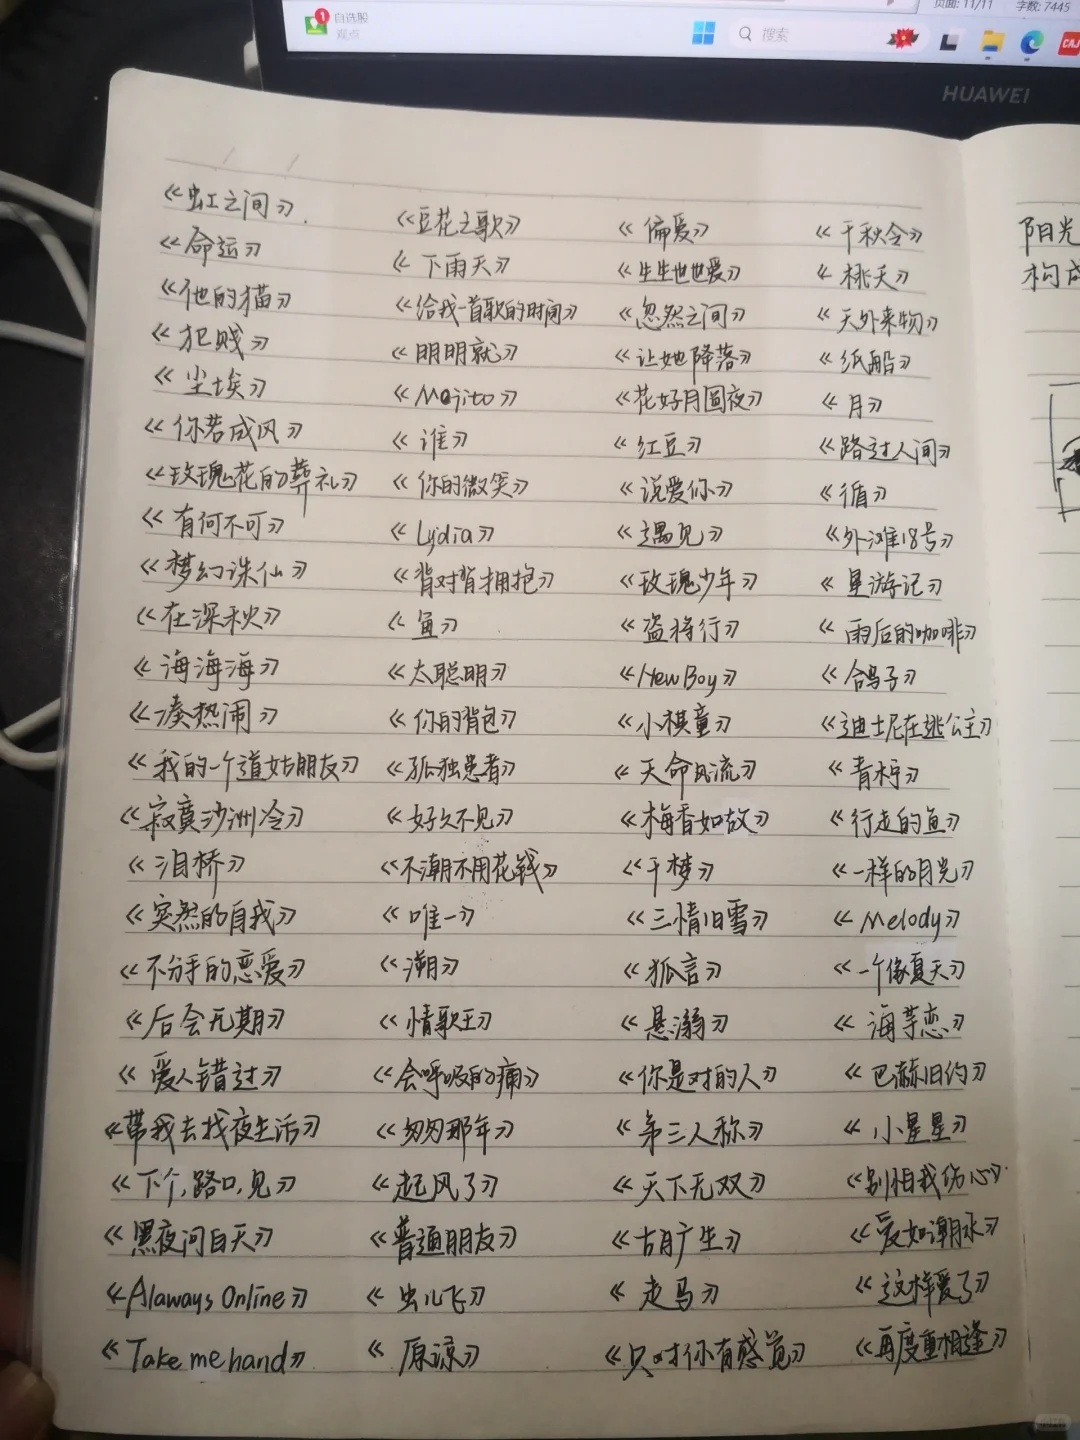 自选股
观点
1
搜索
页面: 11/11
字数: 7445
CAJ
HUAWEI
《虹之间》
《命运》
《他的猫》
《犯贱》
《尘埃》
《你若成风》
《玫瑰花的葬礼》
《有何不可》
《梦幻诛仙》
《在深秋》
《海海海》
《凑热闹》
《我的一个道姑朋友》
《寂寞沙洲冷》
《泪桥》
《突然的自我》
《不分手的恋爱》
《后会无期》
《爱人错过》
《带我去找夜生活》
《下个,路口,见》
《黑夜问白天》
《Alaways Online》
《Take me hand》
《豆花之歌》
《下雨天》
《给我一首歌的时间》
《明明就》
《Mojito》
《谁》
《你的微笑》
《Lydia》
《背对背拥抱》
《鱼》
《太聪明》
《你的背包》
《孤独患者》
《好久不见》
《不潮不用花钱》
《唯一》
《溯》
《情歌王》
《会呼吸的痛》
《匆匆那年》
《起风了》
《普通朋友》
《虫儿飞》
《原谅》
《偏爱》
《生生世世爱》
《忽然之间》
《让她降落》
《花好月圆夜》
《红豆》
《说爱你》
《遇见》
《玫瑰少年》
《盗将行》
《New Boy》
《小棋童》
《天命风流》
《梅香如故》
《千梦》
《三情旧雪》
《狐言》
《悬溺》
《你是对的人》
《第三人称》
《天下无双》
《古月广生》
《走马》
《只对你有感觉》
《千秋令》
《桃夭》
《天外来物》
《纸船》
《月》
《路过人间》
《循》
《外滩18号》
《星游记》
《雨后的咖啡》
《鸽子》
《迪士尼在逃公主》
《青柠》
《行走的鱼》
《一样的月光》
《Melody》
《一个像夏天》
《海芋恋》
《巴赫旧约》
《小星星》
《别怕我伤心》
《爱如潮水》
《这样爱了》
《再度重相逢》
阳光
构成